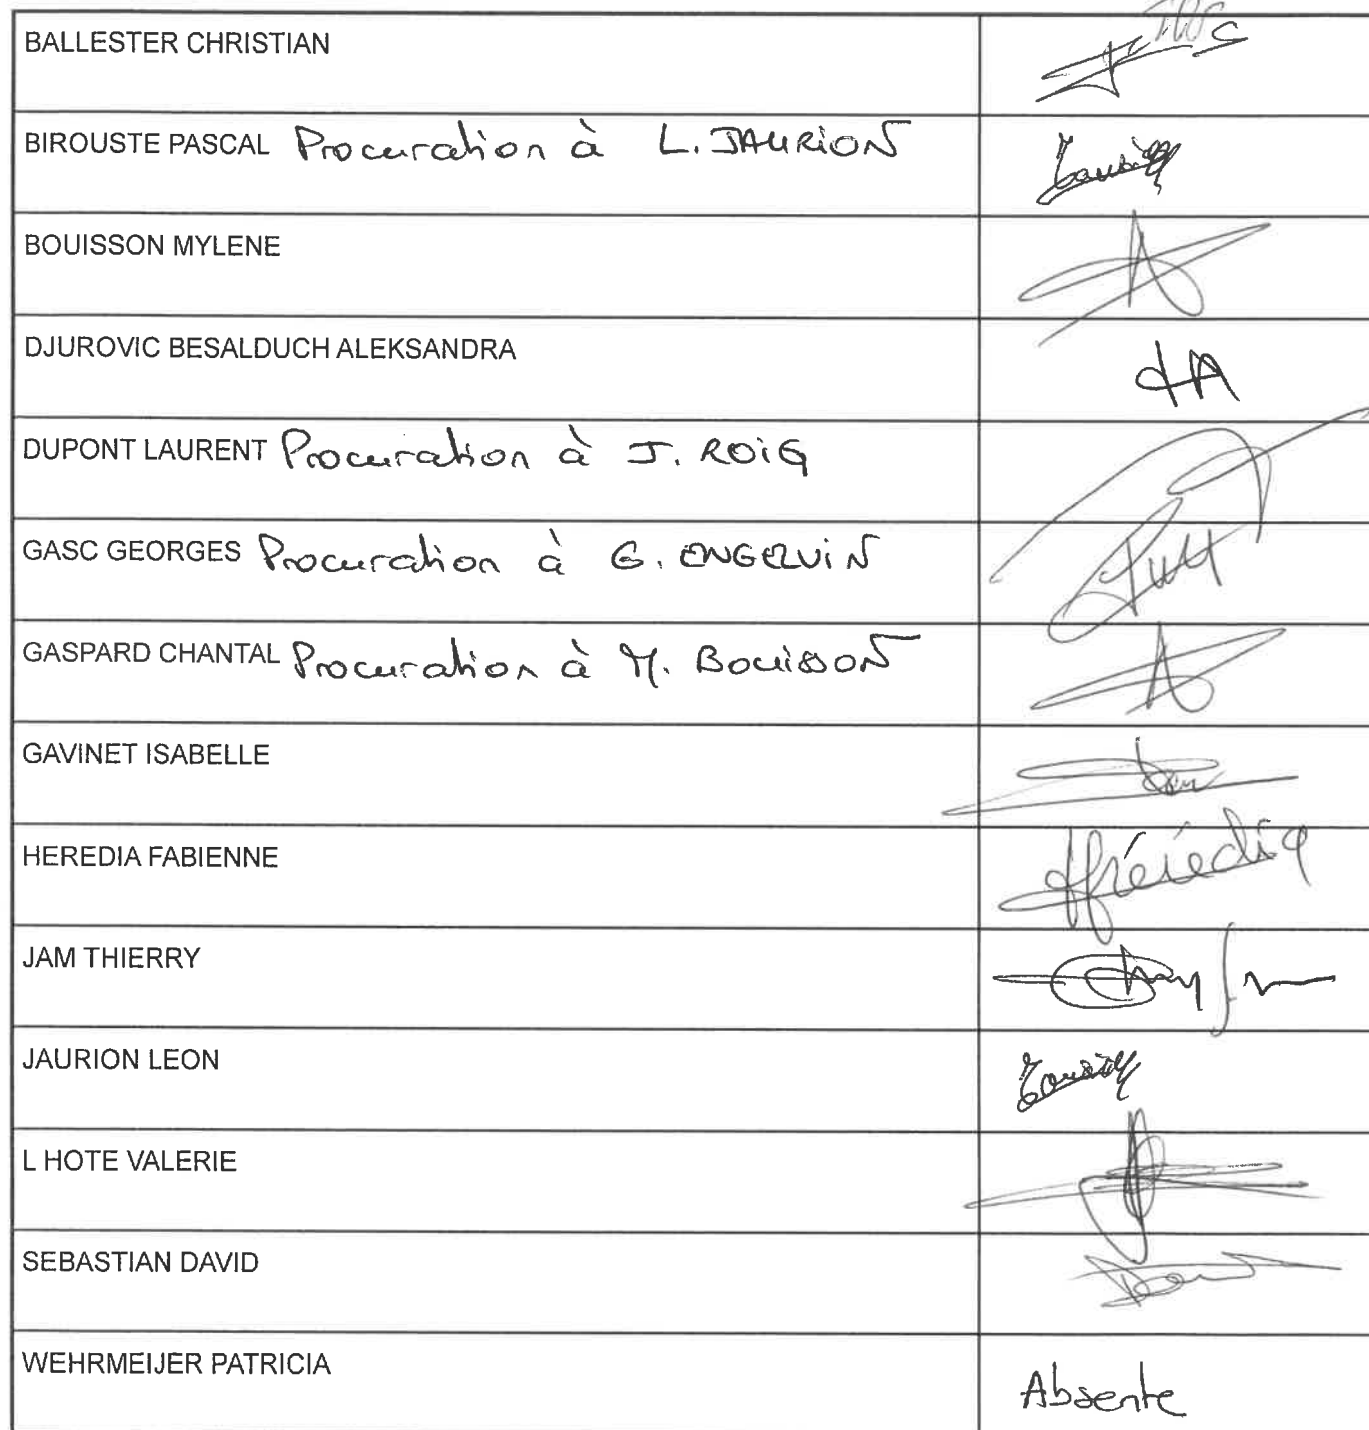 BALLESTER CHRISTIAN
BIROUSTE PASCAL Procuration à L. JAURION
BOUISSON MYLENE
DJUROVIC BESALDUCH ALEKSANDRA
DUPONT LAURENT Procuration à J. ROIG
GASC GEORGES Procuration à G. ENGELVIN
GASPARD CHANTAL Procuration à M. BOUISSON
GAVINET ISABELLE
HEREDIA FABIENNE
JAM THIERRY
JAURION LEON
L HOTE VALERIE
SEBASTIAN DAVID
WEHRMEIJER PATRICIA Absente